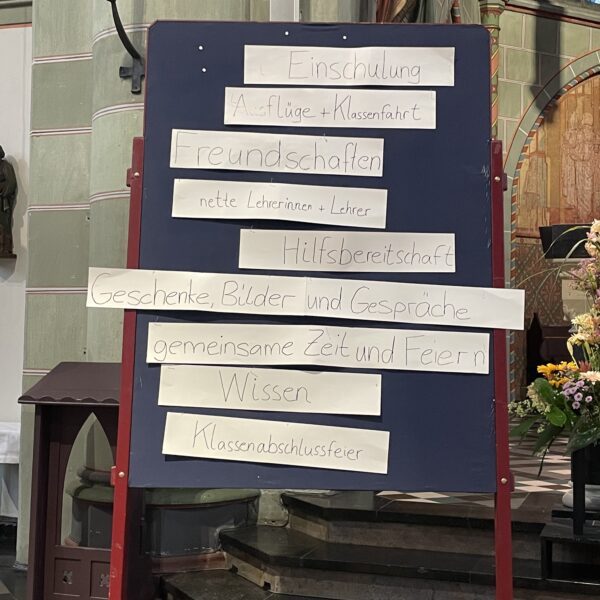 Einschulung
Ausflüge + Klassenfahrt
Freundschaften
nette Lehrerinnen + Lehrer
Hilfsbereitschaft
Geschenke, Bilder und Gespräche
gemeinsame Zeit und Feiern
Wissen
Klassenabschlussfeier